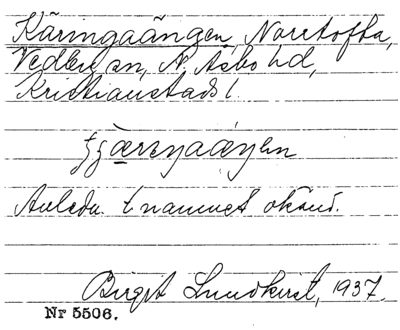 Käringaängen, Noretofta,
Vedby sn, N. Åsbo hd,
Kristianstads l.
Anledn. t. namnet okänd.
Birgit Lundkvist, 1937.
Nr 5506.